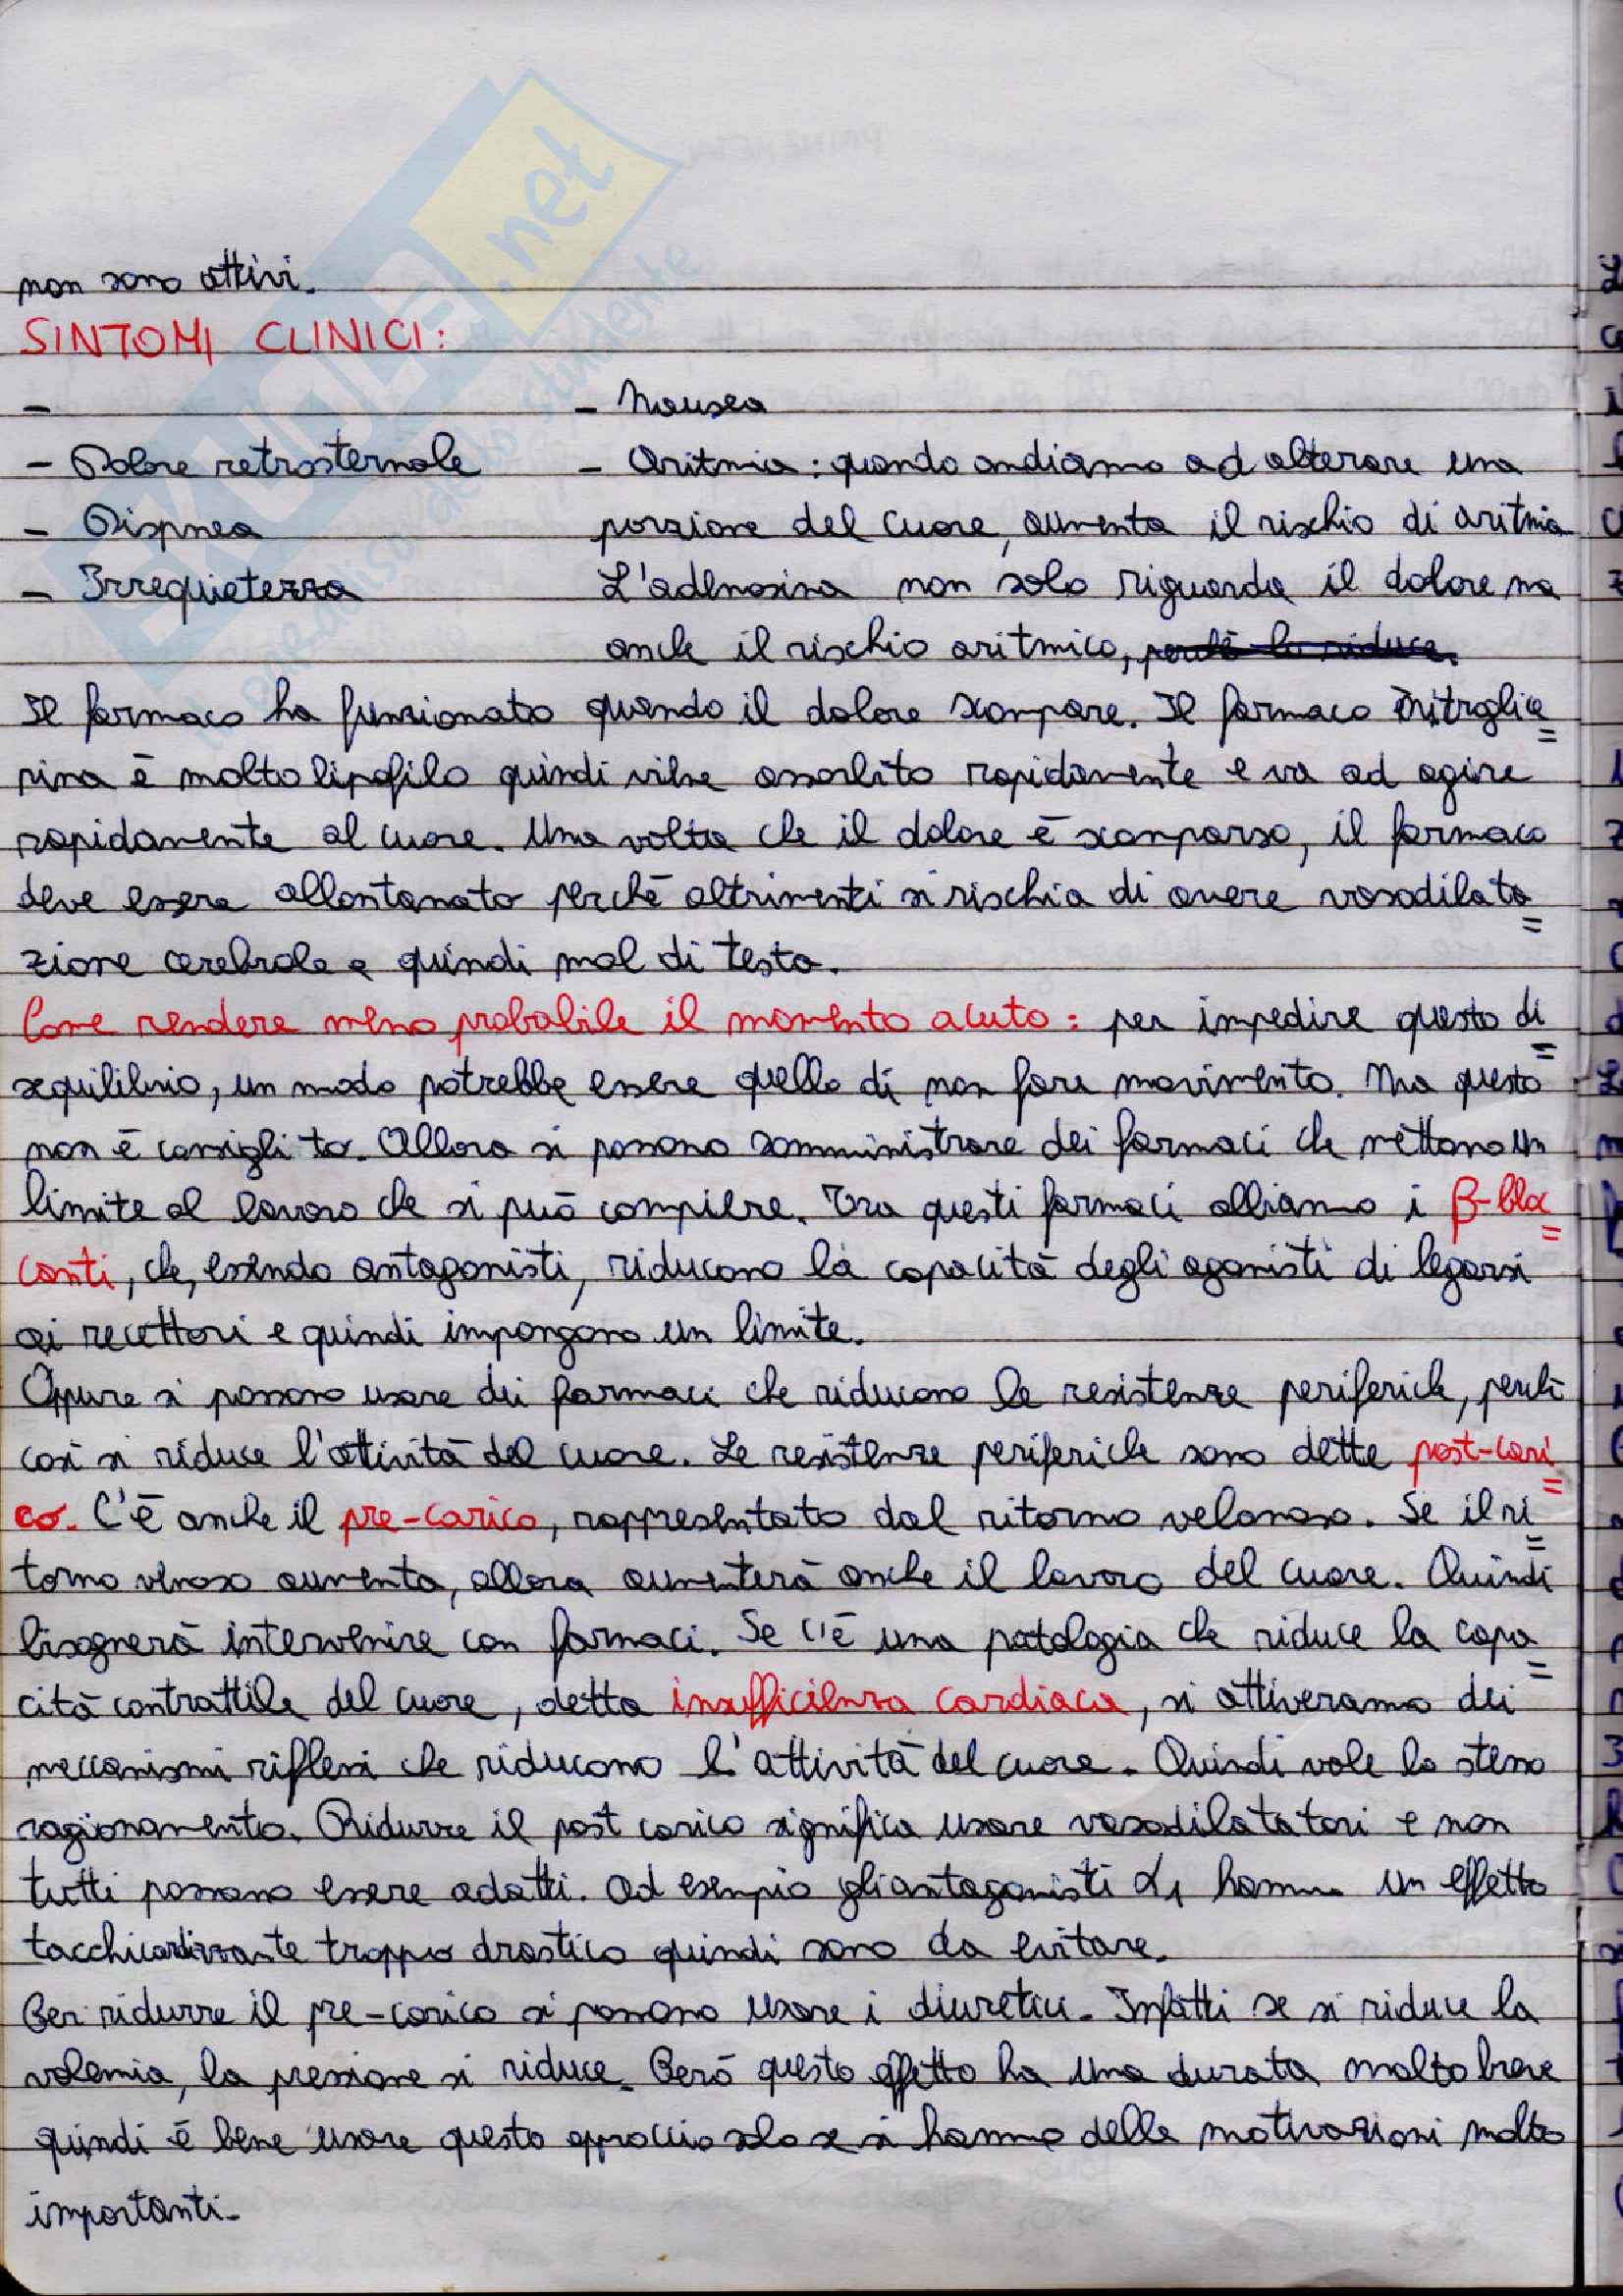 non sono attivi.
SINTOMI CLINICI:
-
- Nausea
- Dolore retrosternale
- Aritmia: quando andiamo ad alterare una
- Dispnea
porzione del cuore, aumenta il rischio di aritmia
- Irrequietezza
L'adenosina non solo riguarda il dolore ma
anche il rischio aritmico, perchè lo riduce.
Il farmaco ha funzionato quando il dolore scompare. Il farmaco nitroglice=
rina è molto lipofilo quindi viene assorbito rapidamente e va ad agire
rapidamente al cuore. Una volta che il dolore è scomparso, il farmaco
deve essere allontanato perchè altrimenti si rischia di avere vasodilata=
zione cerebrale e quindi mal di testa.
Come rendere meno probabile il momento acuto: per impedire questo di=
sequilibrio, un modo potrebbe essere quello di non fare movimento. Ma questo
non è consigli to. Allora si possono somministrare dei farmaci che mettono un
limite al lavoro che si può compiere. Tra questi farmaci abbiamo i β-bloc=
canti, che, essendo antagonisti, riducono la capacità degli agonisti di legarsi
ai recettori e quindi impongono un limite.
Oppure si possono usare dei farmaci che riducono le resistenze periferiche, perchè
così si riduce l'attività del cuore. Le resistenze periferiche sono dette post-cari=
co. C'è anche il pre-carico, rappresentato dal ritorno velonoso. Se il ri=
torno venoso aumenta, allora aumenterà anche il lavoro del cuore. Quindi
bisognerà intervenire con farmaci. Se c'è una patologia che riduce la capa=
cità contrattile del cuore, detta insufficienza cardiaca, si attiveranno dei
meccanismi riflessi che riducono l'attività del cuore. Quindi vale lo stesso
ragionamento. Ridurre il post carico significa usare vasodilatatori e non
tutti possono essere adatti. Ad esempio gli antagonisti α1 hanno un effetto
tacchicardizzante troppo drastico quindi sono da evitare.
Per ridurre il pre-carico si possono usare i diuretici. Infatti se si riduce la
volemia, la pressione si riduce. Però questo effetto ha una durata molto breve
quindi è bene usare questo approccio solo se si hanno delle motivazioni molto
importanti.